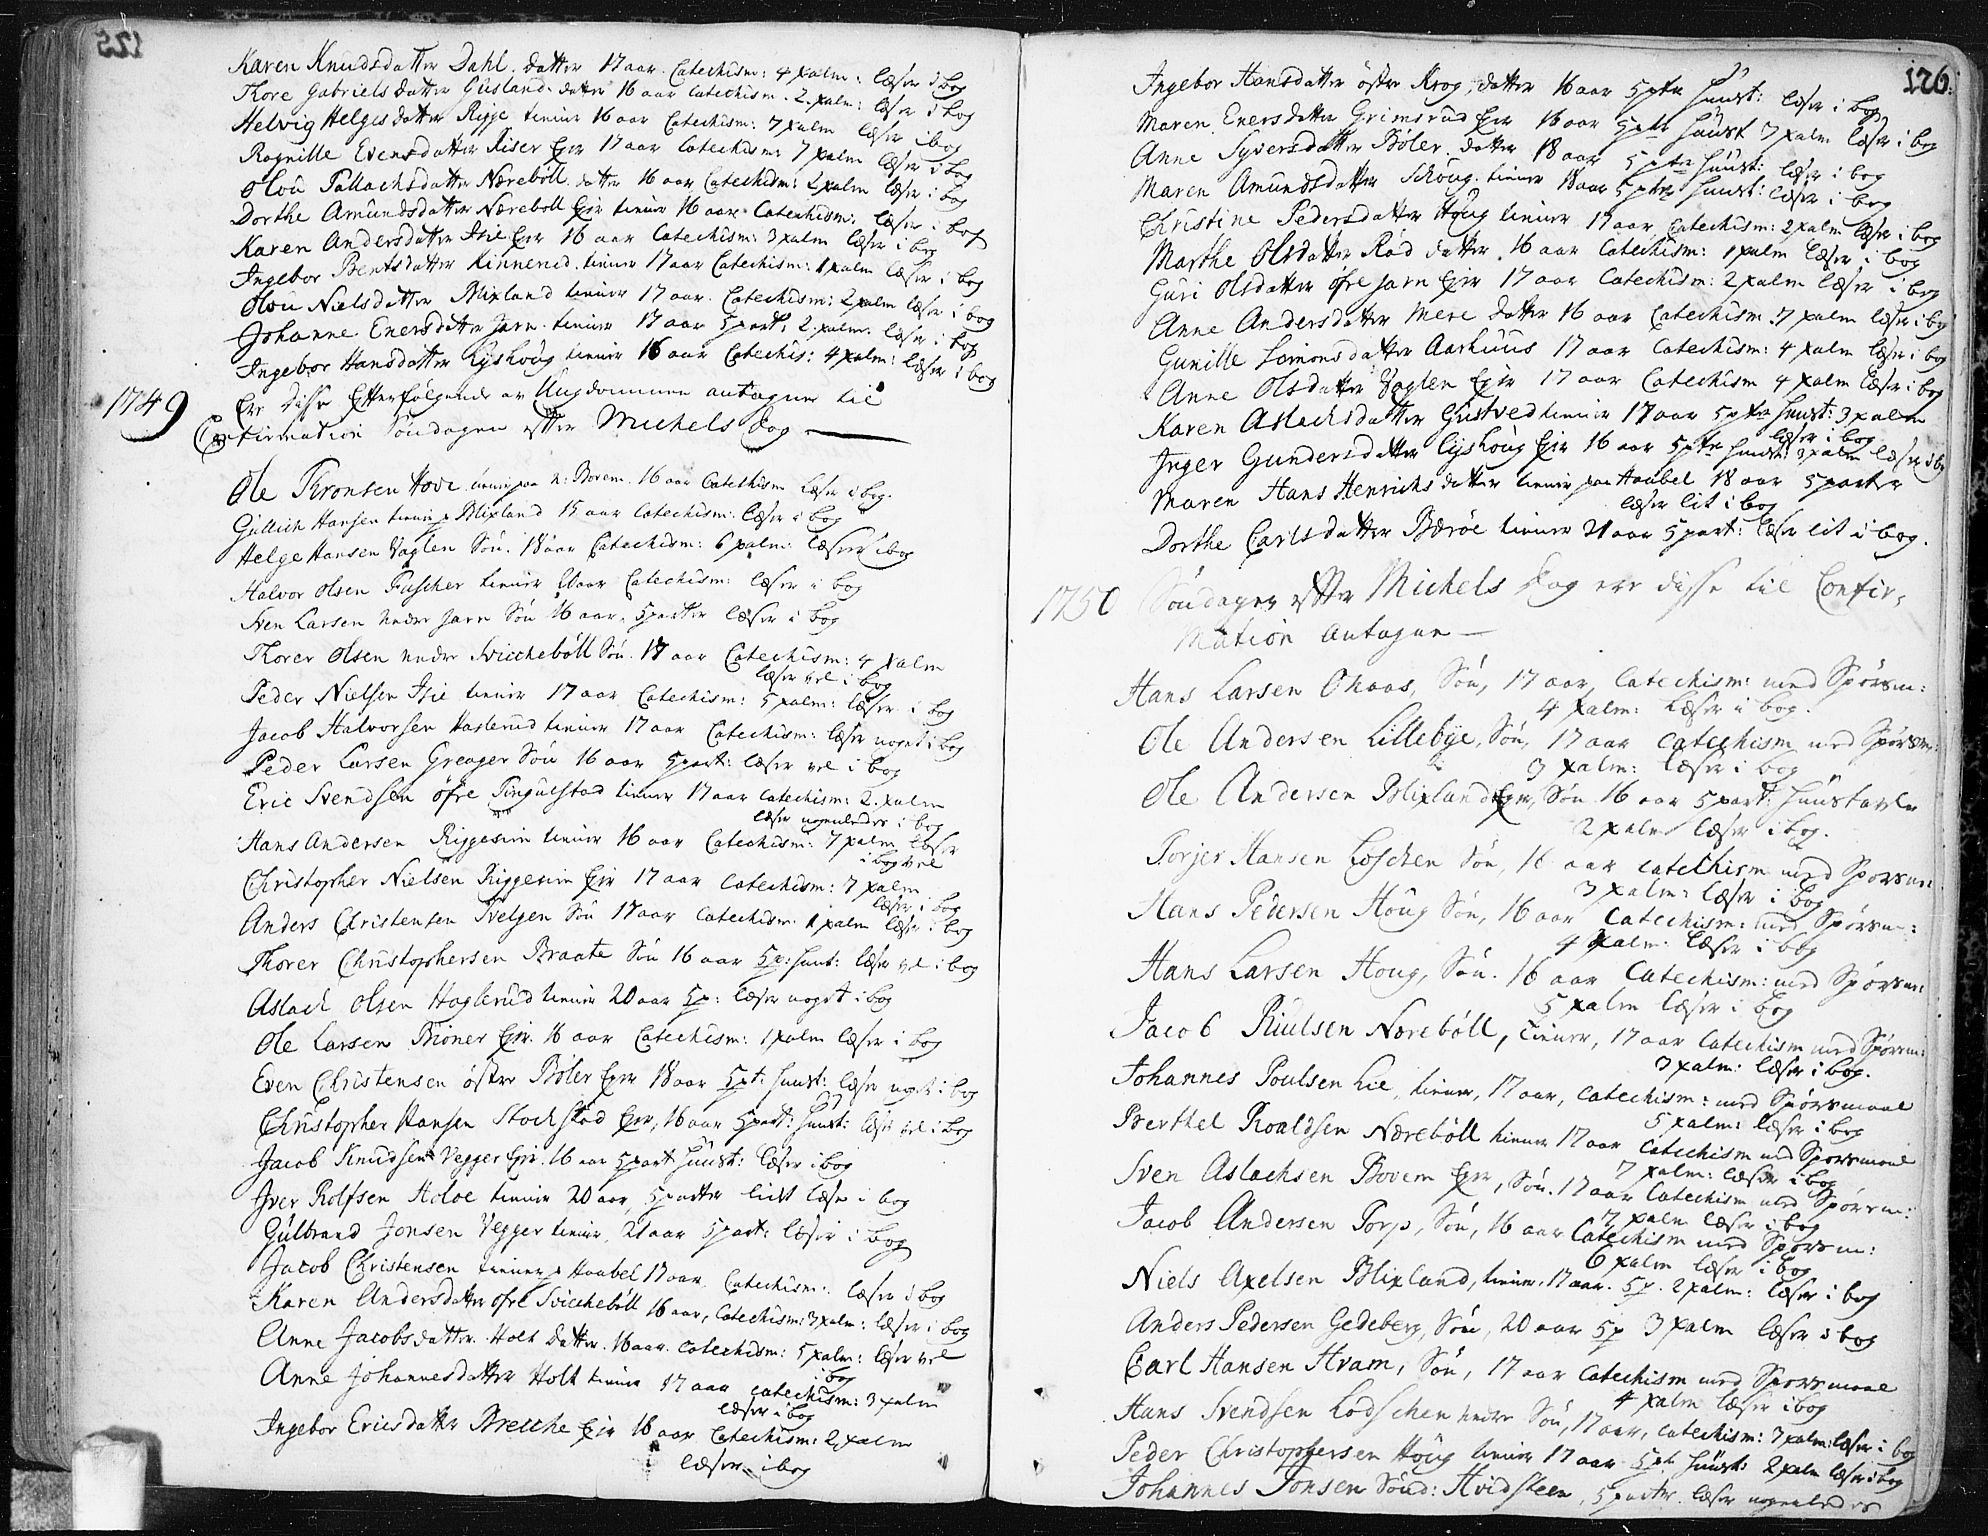 125
Karen Knudsdatter Dahl. datter 17 aar. Catechism: 4 psalm: læser i bog
Thore Gabriels datter Gusland. datter 16 aar Catechism. 2. psalm: læser i bog
Helvig Helgesdatter Rigge tienner 16 aar Catechism: 7 psalm læser i bog
Rognille Evensdatter Riser Eier 17 aar Catechism: 7 psalm læser i bog
Olou Pallachsdatter Nærebøll. datter 16 aar Catechism: 2 psalm læser i bog
Dorthe Amundsdatter Nærebøll Eier tienner 16 aar Catechism: læser i bog
Karen Andersdatter Isie Eier 16 aar Catechism: 3 psalm læser i bog
Ingebor Bentsdatter Kinnerød. tienner 17 aar Catechism: 1 psalm læser i bog
Olou Nielsdatter Blixland tienner 17 aar. Catechism: 2 psalm læser i bog
Johanne Enersdatter Jarn. tienner 17 aar 5 part: 2. psalm: læser i bog
Ingebor Hansdatter Lyshoug tienner 16 aar Catechis: 4 psalm: læser i bog
1749
Ere disse Efterfølgende av Ungdommen antagne til
Confirmation Søndagen efter Michels Dag
Ole Thronsen Hove tienner paa n: Borem. 16 aar Catechism læser i bog.
Gullich Hansen tienner p Blixland 15 aar Catechism: læser i bog
Helge Hansen Vagten Søn. 18 aar Catechism: 6 psalm: læser i bog
Halvor Olsen Fuscher tienner 20 aar Catechism: læser i bog
Sven Larsen nedre Jarn Søn 16 aar. 5 parter læser i bog
Thorer Olsen nedre Svicchebøll Søn. 17 aar Catechism: 4 psalm
læser vel i bog
Peder Nielsen Isie tienner 17 aar Catechism: 5 psalm: læser i bog
Jacob Halvorsen Haslerud tienner 17 aar Catechism: læser noget i bog
Peder Larsen Greager Søn 16 aar 5 part: læser vel i bog
Eric Svendsen øfre Tingulstad tienner 17 aar Catechism: 2. psalm
læser nogenledes i bog
Hans Andersen Riggesvin tienner 16 aar Catechism: 7 psalm læser
i bog vel
Christopher Nielsen Riggesvin Eier 17 aar Catechism: 7 psalm
læser i bog
Anders Christensen Tvelgen Søn 17 aar Catechism 1 psalm læser i bog
Thorer Christophersen Braate Søn 16 aar 5 p: huust: læser vel i bog
Aslach Olsen Haglerud tienner 20 aar 5 p: læser noget i bog
Ole Larsen Briøner Eier. 16 aar Catechism: 1 psalm læser i bog
Even Christensen østre Bøler Eier 18 aar 5 pt: huust: læser noget i bog
Christopher Hansen Stochstad Eier, 16 aar 5 part: huust: læser vel i bog
Jacob Knudsen Vegger Eier. 16 aar 5 part huust: læser i bog
Iver Rolfsen Holoe tienner 20 aar, 5 parter lidt læser i bog
Gulbrand Jonsen Vegger tienner, 21 aar 5 part: læser i bog
Jacob Christensen tienner p Haabel 17 aar Catechism: læser i bog
Karen Andersdatter øfre Svicchebøll 16 aar, Catechism: 3 psalm: læser i bog
Anne Jacobsdatter Holt Datter. 16 aar. Catechism: 5 psalm: læser vel
i bog
Anne Johannesdatter Holt tienner 17 aar Catechism: 3 psalm
læser i bog
Ingebor Ericsdatter Brecche Eier 16 aar Catechism: 2 psalm
læser i bog
126.
Ingebor Hansdatter østre Krog, datter 16 aar 5 pter huust: læser i bog
Maren Enersdatter Grimsrud Eier 16 aar 5 pter huust 7 psalm læser i bog
Anne Syversdatter Bøler. datter 18 aar 5 pter huust: læser i bog
Maren Amundsdatter Schoug. tienner 18 aar 5 pter huust: læser i bog
Christine Pedersdatter Houg tienner 17 aar Catechism: 2 psalm læser i bog
Marthe Olsdatter Rød datter. 16 aar Catechism: 1 psalm læser i bog
Guri Olsdatter øfre Jarn Eier 17 aar Catechism: 2 psalm læser i bog
Anne Andersdatter Mere datter 16 aar Catechism: 7 psalm læser i bog
Gunille Simonsdatter Aarhuus 17 aar Catechism: 4 psalm læser i bog
Anne Olsdatter Vagten Eier 17 aar Catechism 4 psalm læser i bog
Karen Aslachsdatter Gustved tienner 17 aar 5 pter huust: 3 psalm
læser i bog
Inger Gundersdatter Lyshoug Eier 16 aar 5 pter huust: 3 psalm læser i bog
Maren Hans Henrichs datter tienner paa Haabel 18 aar 5 parter
læser lit i bog
Dorthe Carlsdatter Bærøe tienner 21 aar 5 part: læser lit i bog.
1750 Søndagen efter Michels Dag ere disse til Confir-
mation antagne
Hans Larsen Ohaas, Søn, 17 aar, Catechism: med Spørsm:
4 psalm: læser i bog.
Ole Andersen Lillebye, Søn, 17 aar Catechism med Spørsm:
3 psalm: læser i bog
Ole Andersen Blixland Eier, Søn 16 aar 5 part: huustavle
2 psalm læser i bog.
Torjer Hansen Loschen Søn, 16 aar Catechism med Spørsm:
3 psalm: læser i bog
Hans Pedersen Houg Søn, 16 aar Catechism: med Spørsm:
4 psalm: læser i bog
Hans Larsen Houg, Søn. 16 aar Catechism: med Spørsm:
5 psalm læser i bog
Jacob Riulsen Norebøll, tienner, 17 aar Catechism med Spørsm:
3 psalm: læser i bog.
Johannes Poulsen Lie, tienner, 17 aar, Catechism: med Spørsmaal
5 psalm: læser i bog
Berthel Roaldsen Nærebøll tienner 17 aar Catechism med Spørsmaal
7 psalm: læser i bog
Sven Aslachsen Bovem Eier, Søn. 17 aar Catechism med Spørsm:
7 psalm læser i bog
Jacob Andersen Torp, Søn, 16 aar Catechism med Spørsm:
6 psalm læser i bog
Niels Axelsen Blixland, tienner, 17 aar. 5 p. 2 psalm: læser i bog
Anders Pedersen Gedeberg, Søn, 20 aar 5 p 3 psalm læser i bog
Carl Hansen Hram, Søn, 17 aar Catechism med Spørsmaal
4 psalm læser i bog
Hans Svendsen Lodschen nedre Søn, 17 aar, Catechism: 7 psalm: læser i bog
Peder Christophersen Houg tienner 17 aar 5 pt huust: 2 psalm læser i bog
Johannes Jonsen Sønd: Hvidsteen, 5 parter. læser nogenledes